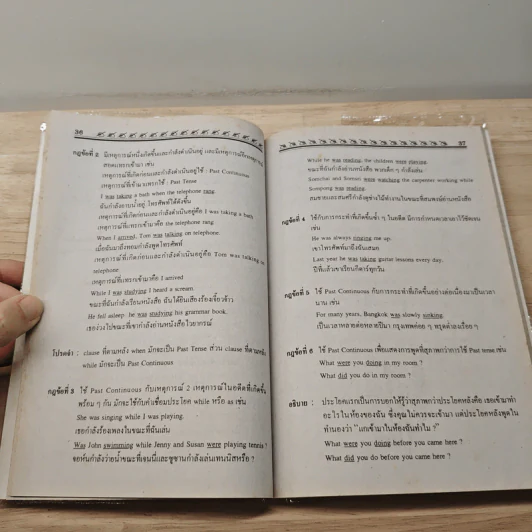 36
กฎข้อที่ 2 มีเหตุการณ์หนึ่งเกิดขึ้นและกำลังดำเนินอยู่ และมีเหตุการณ์อีก
สอดแทรกเข้ามา เช่น
เหตุการณ์ที่เกิดก่อนและกำลังดำเนินอยู่ใช้ : Past Continuous
เหตุการณ์ที่เข้ามาแทรกใช้ : Past Tense
I was taking a bath when the telephone rang.
ฉันกำลังอาบน้ำอยู่ โทรศัพท์ได้ดังขึ้น
เหตุการณ์ที่เกิดก่อนและกำลังดำเนินอยู่คือ I was taking a bath
เหตุการณ์ที่เข้ามาคือ the telephone rang.
When I arrived, Tom was talking on telephone.
เมื่อฉันมาถึงทอมกำลังพูดโทรศัพท์
เหตุการณ์ที่เกิดก่อนและกำลังดำเนินอยู่คือ Tom was talking on
telephone
เหตุการณ์ที่แทรกเข้ามาคือ I arrived
While I was studying I heard a scream
ขณะที่ฉันกำลังเรียนหนังสือ ฉันได้ยินเสียงร้องเจี๊ยวจ๊าว
He fell asleep. he was studying his grammar book.
เธอง่วงไปขณะที่เขากำลังอ่านหนังสือไวยากรณ์
โปรดจำ : clause ที่ตามหลัง when มักจะเป็น Past Tense ส่วน clause ที่ตามหลัง
while มักจะเป็น Past Continuous
กฎข้อที่ 3 ใช้ Past Continuous กับเหตุการณ์ 2 เหตุการณ์ในอดีตที่เกิดขึ้น
พร้อม ๆ กัน มักจะใช้กับคำเชื่อมประโยค while หรือ as เช่น
She was singing while I was playing.
เธอกำลังร้องเพลงในขณะที่ฉันเล่น
Was John swimming while Jenny and Susan were playing tennis ?
จอห์นกำลังว่ายน้ำขณะที่เจนนี่และซูซานกำลังเล่นเทนนิสหรือ ?
37
While he was reading, the children were playing.
ขณะที่ฉันกำลังอ่านหนังสือ พวกเด็ก ๆ กำลังเล่น
and Somsri were watching the carpenter working while
Sompong was
กฎข้อที่ 4 ใช้กับการกระทำที่เกิดขึ้นซ้ำ ๆ ในอดีต มีการกำหนดเวลาเอาไว้ชัดเจน
เช่น
He was always ringing me up.
เขาโทรศัพท์มาถึงฉันเสมอ
Last year he was taking guitar lessons every day.
ปีที่แล้วเขาเรียนกีตาร์ทุกวัน
กฎข้อที่ 5 ใช้ Past Continuous กับการกระทำที่เกิดขึ้นอย่างต่อเนื่องมาเป็นเวลา
นาน เช่น
For many years, Bangkok was slowly sinking.
เป็นเวลาหลายต่อหลายปีมา กรุงเทพค่อย ๆ ทรุดต่ำลงเรื่อย ๆ
กฎข้อที่ 6 ใช้ Past Continuous เพื่อแสดงการพูดที่สุภาพกว่าการใช้ Past tense เช่น
What were you doing in my room ?
What did you do in my room ?
อธิบาย : ประโยคแรกเป็นการบอกให้รู้ว่าสุภาพกว่าประโยคหลังคือ เธอเข้ามาทำ
อะไรในห้องของฉัน ซึ่งคุณไม่ควรจะเข้ามา แต่ประโยคหลังพูดใน
ทำนองว่า "แกเข้ามาในห้องฉันทำไม ?"
What were you doing before you came here ?
What did you do before you came here ?